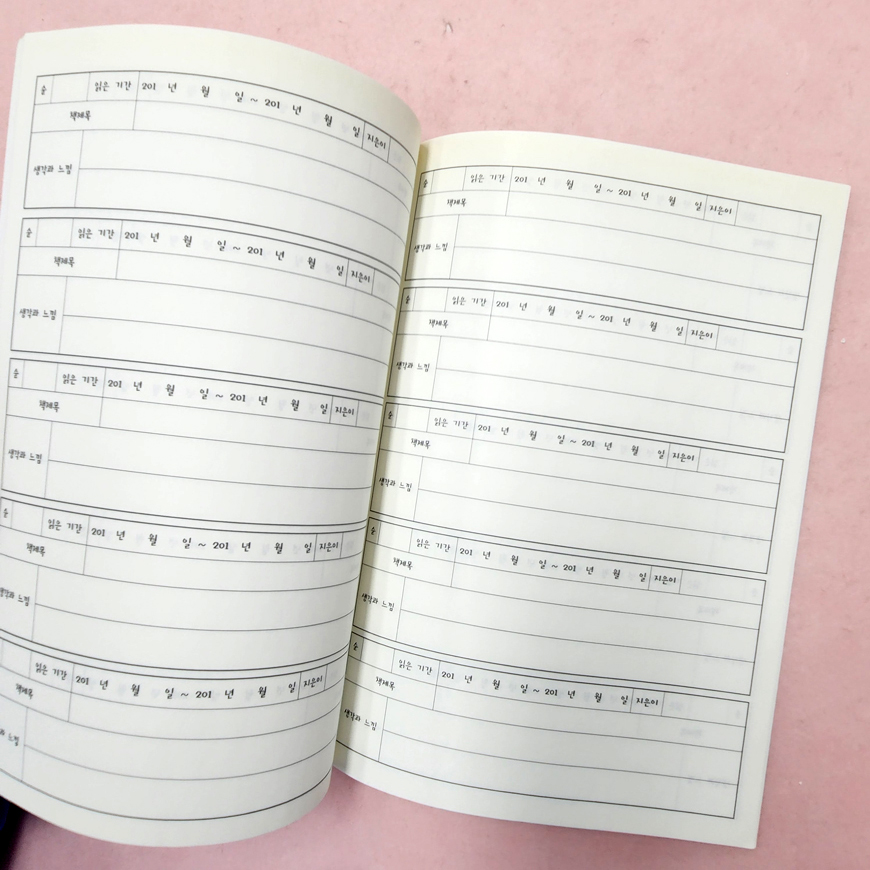 순 읽은 기간 201 년 월 일 ~ 201 년 월 일 지은이
책제목
생각과 느낌
순 읽은 기간 201 년 월 일 ~ 201 년 월 일 지은이
책제목
생각과 느낌
순 읽은 기간 201 년 월 일 ~ 201 년 월 일 지은이
책제목
생각과 느낌
순 읽은 기간 201 년 월 일 ~ 201 년 월 일 지은이
책제목
생각과 느낌
읽은 기간 201 년 월 일 ~ 201 년 월 일 지은이
책제목
느낌
순 읽은 기간 201 년 월 일 ~ 201 년 월 일 지은이
책제목
생각과 느낌
순 읽은 기간 201 년 월 일 ~ 201 년 월 일 지은이
책제목
생각과 느낌
순 읽은 기간 201 년 월 일 ~ 201 년 월 일 지은이
책제목
생각과 느낌
순 읽은 기간 201 년 월 일 ~ 201 년 월 일 지은이
책제목
생각과 느낌
순 읽은 기간 201 년 월 일 ~ 201 년 월 일 지은이
책제목
생각과 느낌